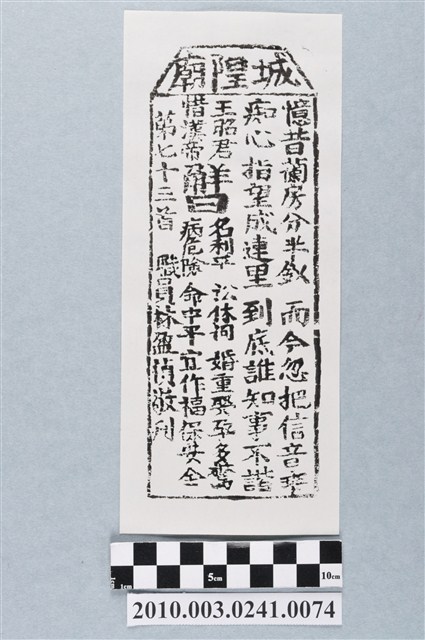 城隍廟
憶昔蘭房分半釵 而今忽把信音乖
痴心指望成連里 到底誰知事不諧
王昭君 解曰 名利平 訟休问 婚重癸 孕多驚
惜漢帝 病危險 命中平 宜作福 保安全
第七十三首 職員林盈敬刊
1cm 5cm 10cm
2010.003.0241.0074